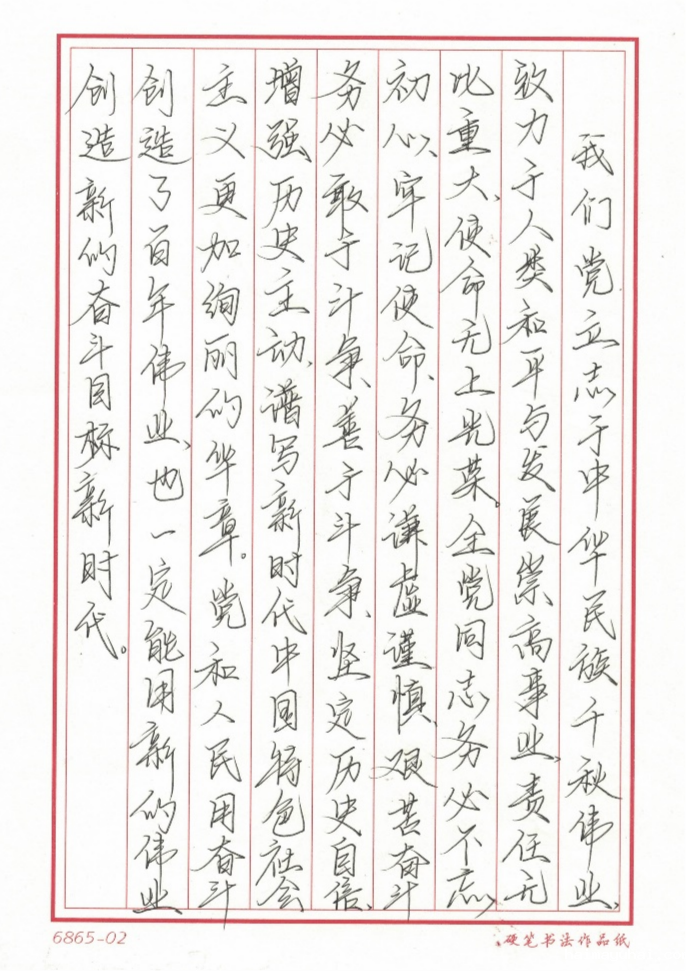 我们党立志于中华民族千秋伟业、
致力于人类和平与发展崇高事业、责任无
比重大、使命无上光荣。全党同志务必不忘
初心、牢记使命、务必谦虚谨慎、艰苦奋斗
务必敢于斗争、善于斗争、坚定历史自信、
增强历史主动、谱写新时代中国特色社会
主义更加绚丽的华章。党和人民用奋斗
创造了百年伟业、也一定能用新的伟业
创造新的奋斗目标新时代。
6865-02
硬笔书法作品纸